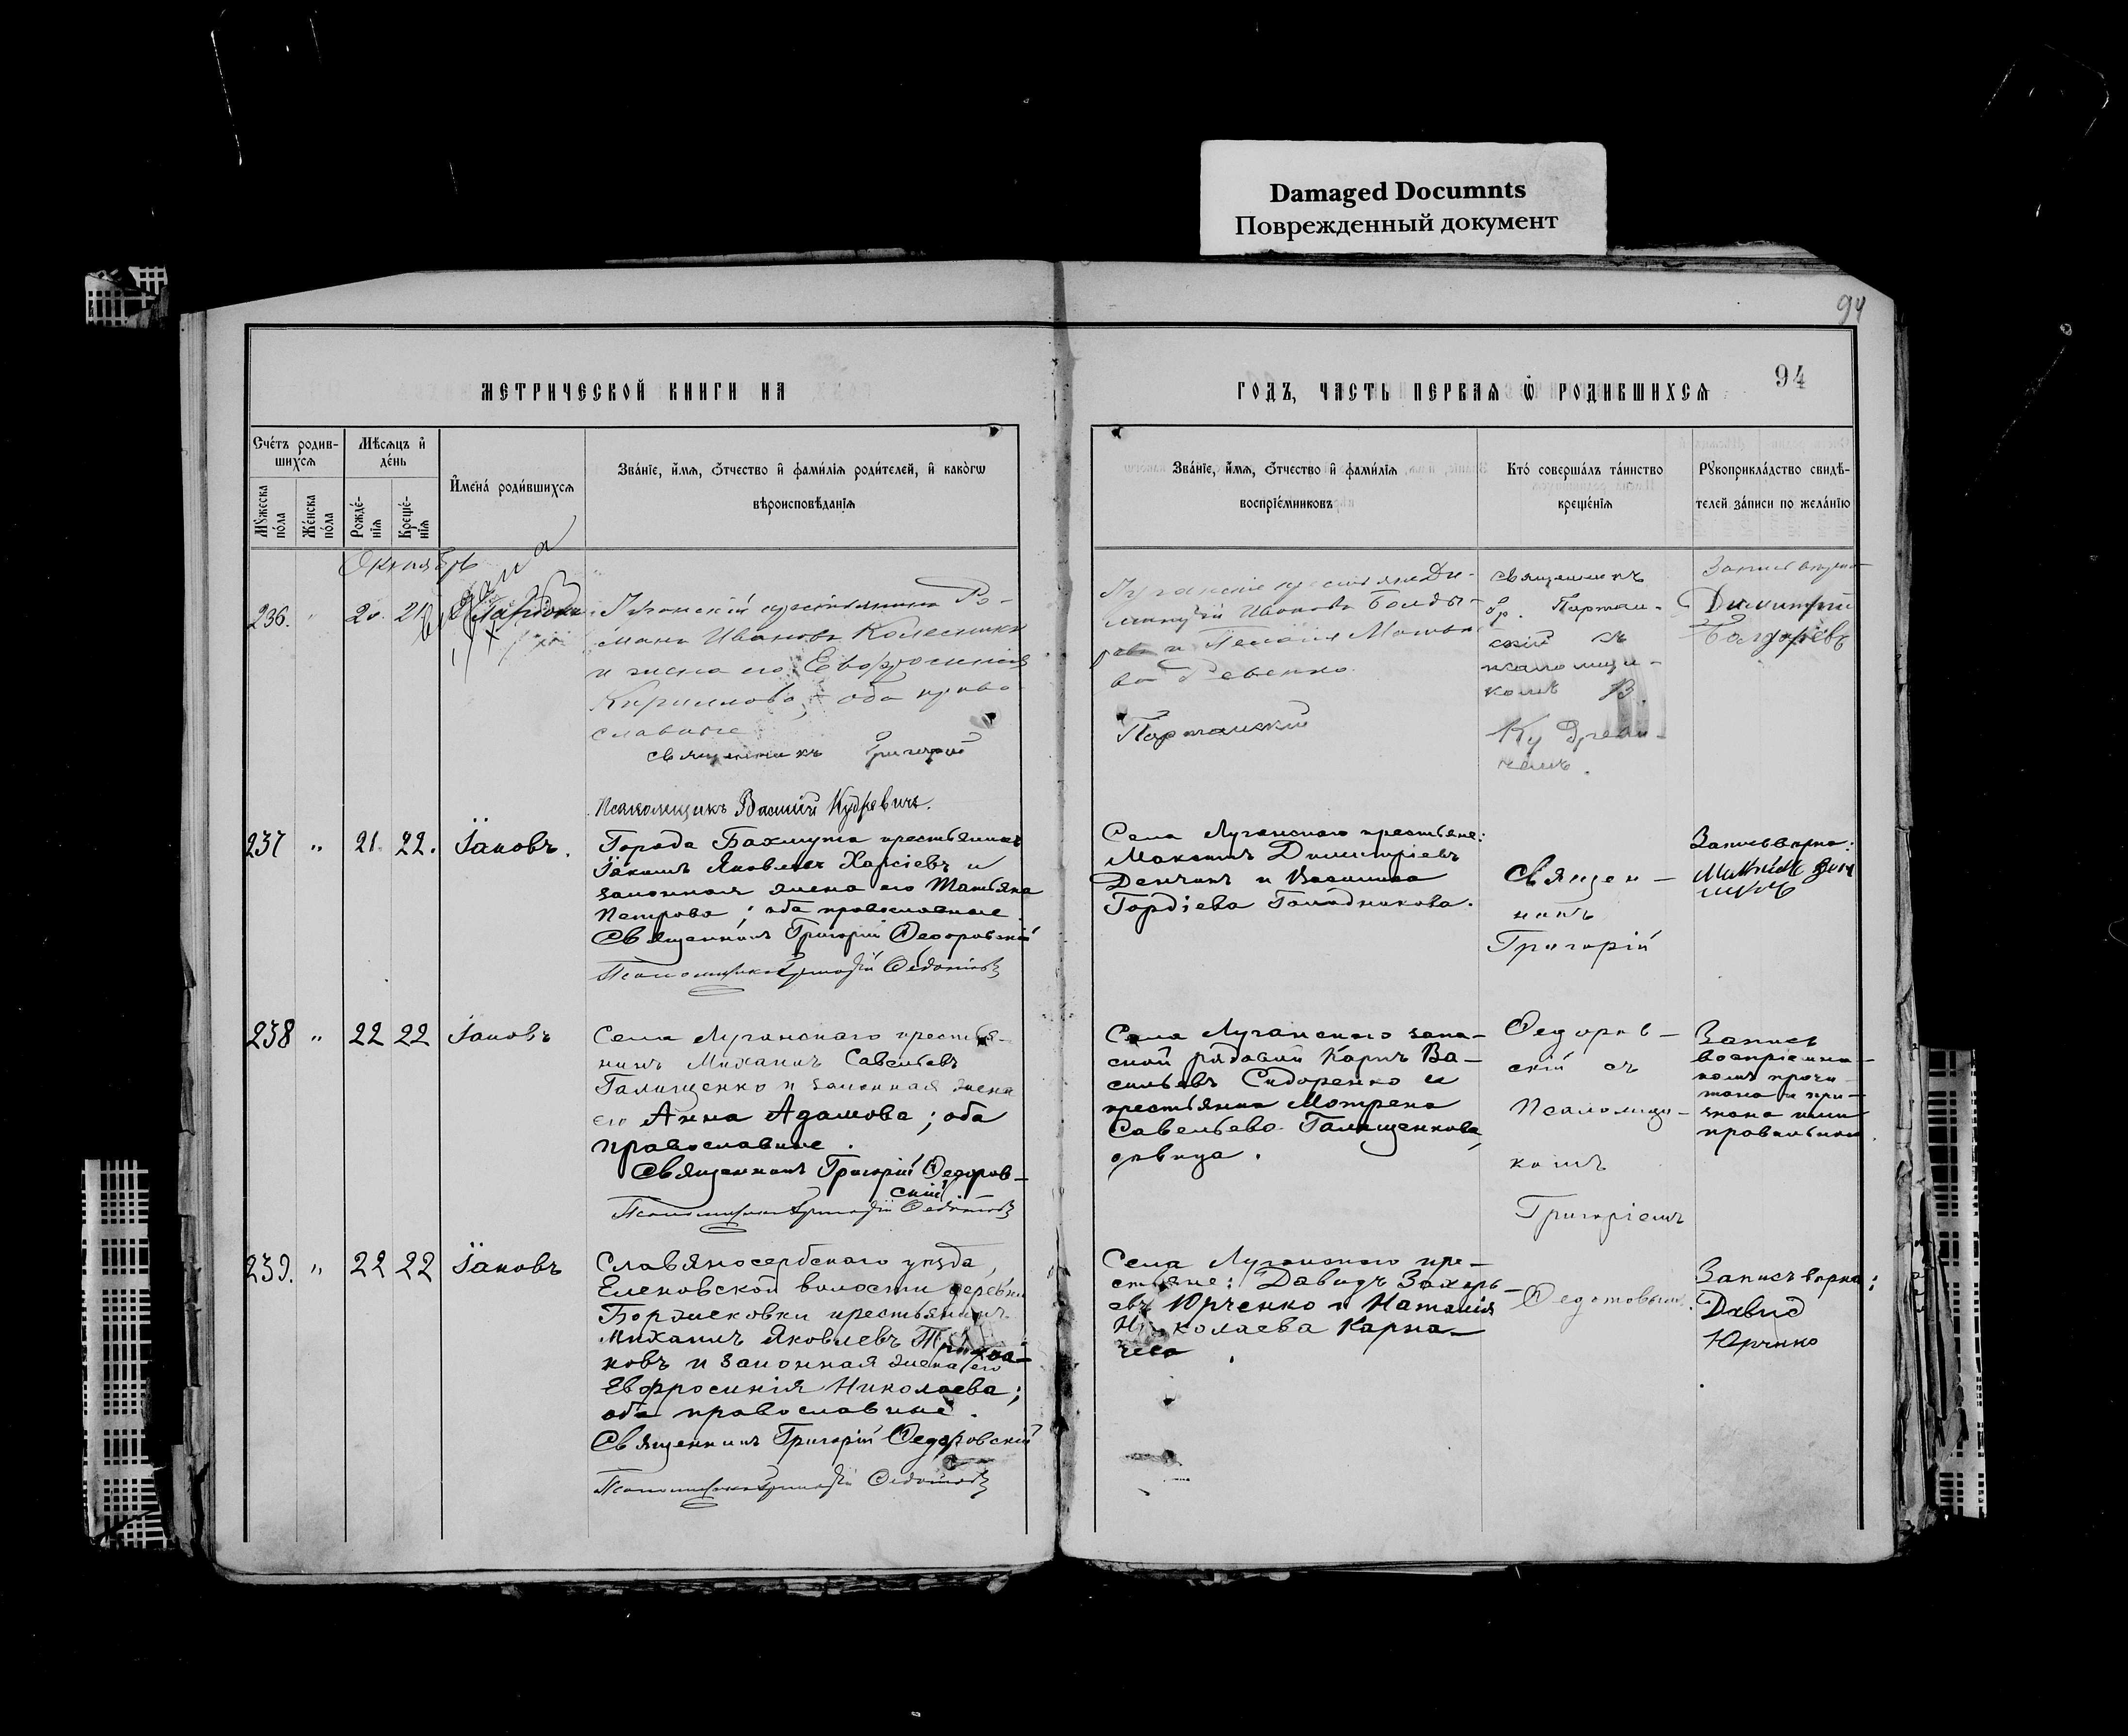 Damaged Documnts
Поврежденный документ
94
МЕТРИЧЕСКОЙ КНИГИ НА
ГОДЪ, ЧАСТЬ ПЕРВАЯ Ѿ РОДИВШИХСЯ
94
Счетъ родив-
шихся
Мужеска пола
Женска пола
Мѣсяцъ и день
Рожде-
нія
Креще-
нія
Имена родившихся
Званіе, имя, отчество и фамилія родителей, и какогѡ
вѣроисповѣданія
Званіе, имя, отчество и фамилія
воспріемниковъ
Кто совершалъ таинство
крещенія
Рукоприкладство свидѣ-
телей записи по желанію
Октябрь
236. " 20. 21
Луганскій крестьянинъ Ро-
манъ Ивановъ Колесникъ
и жена его Евфросинія
Кириллова, оба право
славные
священникъ Григорій
Псаломщикъ Василій Кудревичъ.
Луганскіе крестьяне Ди-
митрій Ивановъ Болды-
ва Ревенко
Портанскій
священникъ
гр. Портан-
скій съ
псаломщи-
комъ В.
Кудреви-
чемъ.
Запись вѣрна
Димитрій
Болдыревъ
237 " 21. 22. Іаковъ.
Города Бахмута крестьянинъ
Іакимъ Яковлевъ Харсіевъ и
законная жена его Татьяна
Петрова; оба православные.
Священникъ Григорій Ѳедоровскій
Псаломщикъ Григорій Ѳедотовъ
Села Луганскаго крестьяне:
Максимъ Димитріевъ
Демчикъ и Василиса
Гордіева Голодникова.
Священ-
никъ
Григорій
Запись вѣрна:
238 " 22 22 Іаковъ
Села Луганскаго крестья-
нинъ Михаилъ Савельевъ
Галищенко и законная жена
его Анна Адамова; оба
православные.
Священникъ Григорій Ѳедоров-
скій
Псаломщикъ Григорій Ѳедотовъ
Села Луганскаго запа-
сной рядовой Карпъ Ва-
сильевъ Сидоренко и
крестьянка Мотрена
Савельева Галищенкова,
дѣвица.
Ѳедоров-
скій съ
псаломщи-
комъ
Григоріемъ
Запись
воспріемни-
комъ прочи-
тана и при-
знана ими
правильной.
239. " 22 22 Іаковъ
Славяносербскаго уѣзда,
Еленовской волости деревни
Боржиковки крестьянинъ
Михаилъ Яковлевъ
ковъ и законная жена его
Евфросинія Николаева;
оба православные.
Священникъ Григорій Ѳедоровскій
Псаломщикъ Григорій Ѳедотовъ
Села Луганскаго кре-
стьяне: Давидъ Захарь-
евъ Юрченко и Наталія
Николаева Карпа-
чева.
Ѳедотовымъ.
Запись вѣрна:
Давид
Юрченко